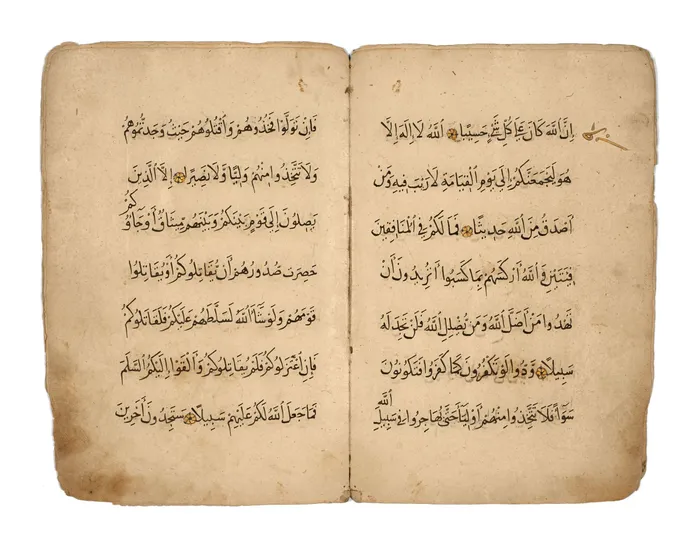 اِنَّ اللّٰهَ كَانَ عَلٰى كُلِّ شَيْءٍ حَسِيْبًا اَللّٰهُ لَا اِلٰهَ اِلَّا
هُوَ لَيَجْمَعَنَّكُمْ اِلٰى يَوْمِ الْقِيَامَةِ لَا رَيْبَ فِيهِ وَمَنْ
اَصْدَقُ مِنَ اللّٰهِ حَدِيثًا فَمَا لَكُمْ فِي الْمُنَافِقِينَ
فِئَتَيْنِ وَاللّٰهُ اَرْكَسَهُمْ بِمَا كَسَبُوا اَتُرِيدُونَ اَنْ
تَهْدُوا مَنْ اَضَلَّ اللّٰهُ وَمَنْ يُضْلِلِ اللّٰهُ فَلَنْ تَجِدَ لَهُ
سَبِيلًا وَدُّوا لَوْ تَكْفُرُونَ كَمَا كَفَرُوا فَتَكُونُونَ
سَوَآءً فَلَا تَتَّخِذُوا مِنْهُمْ اَوْلِيَآءَ حَتّٰى يُهَاجِرُوا فِي سَبِيلِ اللّٰهِ
فَاِنْ تَوَلَّوْا فَخُذُوهُمْ وَاقْتُلُوهُمْ حَيْثُ وَجَدْتُمُوهُمْ
وَلَا تَتَّخِذُوا مِنْهُمْ وَلِيًّا وَلَا نَصِيرًا اِلَّا الَّذِينَ
يَصِلُونَ اِلٰى قَوْمٍ بَيْنَكُمْ وَبَيْنَهُمْ مِيثَاقٌ اَوْ جَآؤُكُمْ
حَصِرَتْ صُدُورُهُمْ اَنْ يُقَاتِلُوكُمْ اَوْ يُقَاتِلُوا
قَوْمَهُمْ وَلَوْ شَآءَ اللّٰهُ لَسَلَّطَهُمْ عَلَيْكُمْ فَلَقَاتَلُوكُمْ
فَاِنِ اعْتَزَلُوكُمْ فَلَمْ يُقَاتِلُوكُمْ وَاَلْقَوْا اِلَيْكُمُ السَّلَمَ
فَمَا جَعَلَ اللّٰهُ لَكُمْ عَلَيْهِمْ سَبِيلًا سَتَجِدُونَ آخَرِينَ